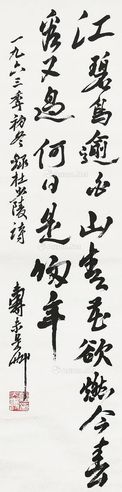 江碧鳥逾白山青花欲燃今春
看又過何日是歸年
一九六三年初冬録杜少陵詩